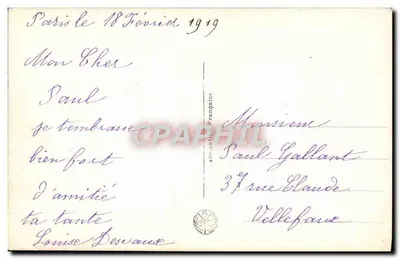 Paris le 18 Février 1919
Mon Cher
Paul
je t'embrasse
bien fort
d'amitié
ta tante
Louise Desvaux
Fabrication Française
Monsieur
Paul Gallant
37 rue Claude
Vellefaux
CPARAMA